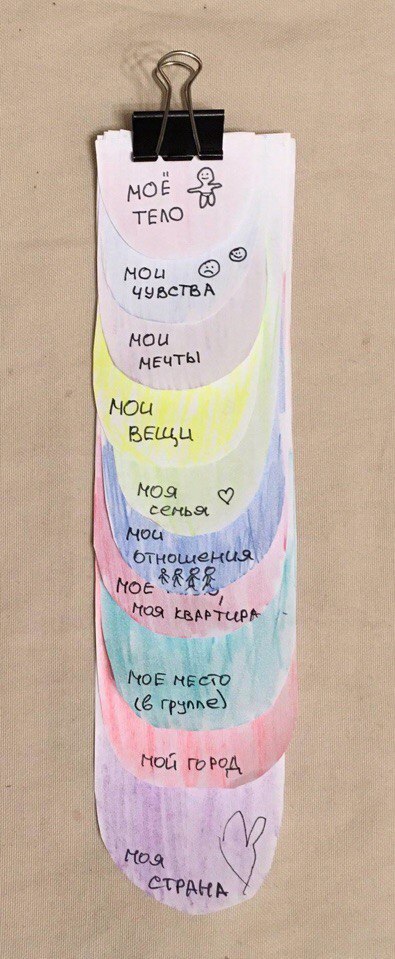 МОЁ
ТЕЛО
МОИ
ЧУВСТВА
МОИ
МЕЧТЫ
МОИ
ВЕЩИ
МОЯ
семья
МОИ
ОТНОШЕНИЯ
МОЕ
МОЯ КВАРТИРА
МОЕ МЕСТО
(в группе)
МОЙ ГОРОД
МОЯ
СТРАНА